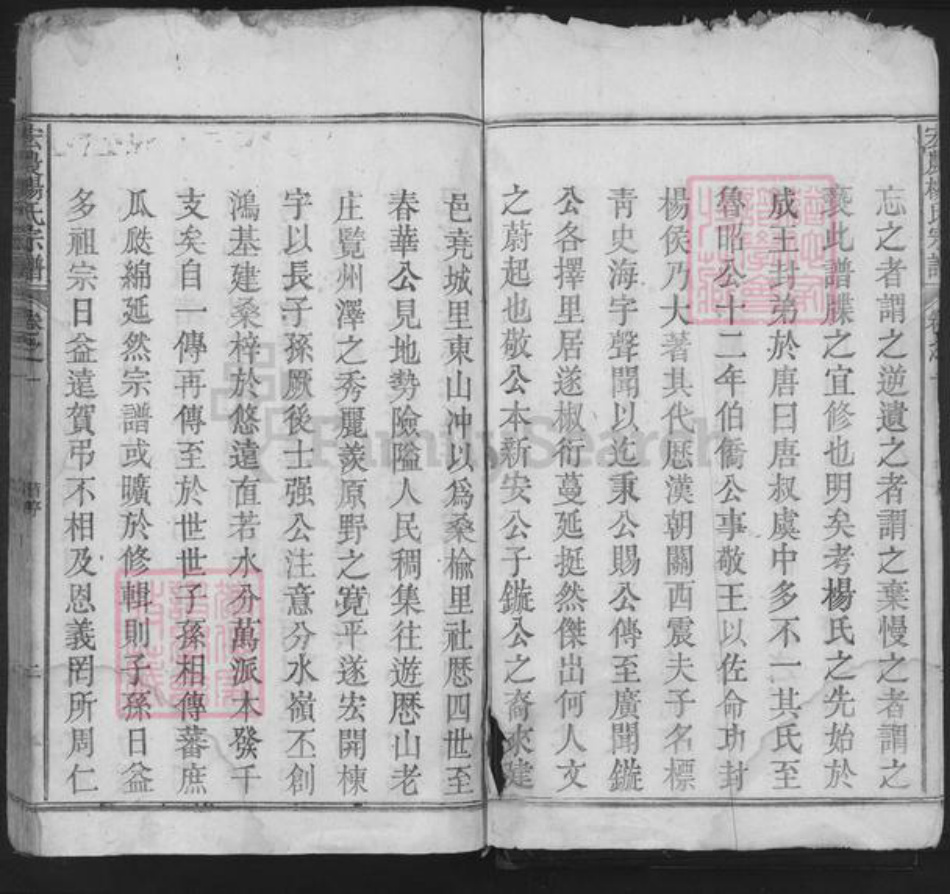 忘之者謂之逆遺之者謂之棄慢之者謂之
褻此譜牒之宜修也明矣考楊氏之先始於
成王封弟於唐曰唐叔虞中多不一其氏至
魯昭公十二年伯僑公事敬王以佐命功封
楊侯乃大著其代歴漢朝關西震夫子名標
青史海宇聲聞以迄秉公賜公傳至廣聞鏇
公各擇里居遂椒衍蔓延挺然傑出何人文
之蔚起也敬公本新安公子鏇公之裔來建
邑堯城里東山冲以爲桑楡里社歴四世至
春華公見地勢險隘人民稠集往遊歴山老
庄覽州澤之秀麗羨原野之寬平遂宏開棟
宇以長子孫厥後士强公注意分水嶺丕創
鴻基建桑梓於悠遠直若水分萬派木發千
支矣自一傳再傳至於世世子孫相傳蕃庶
瓜瓞綿延然宗譜或曠於修輯則子孫日益
多祖宗日益遠賀弔不相及恩義罔所周仁
宏農楊氏宗譜
卷之一
二
FamilySearch